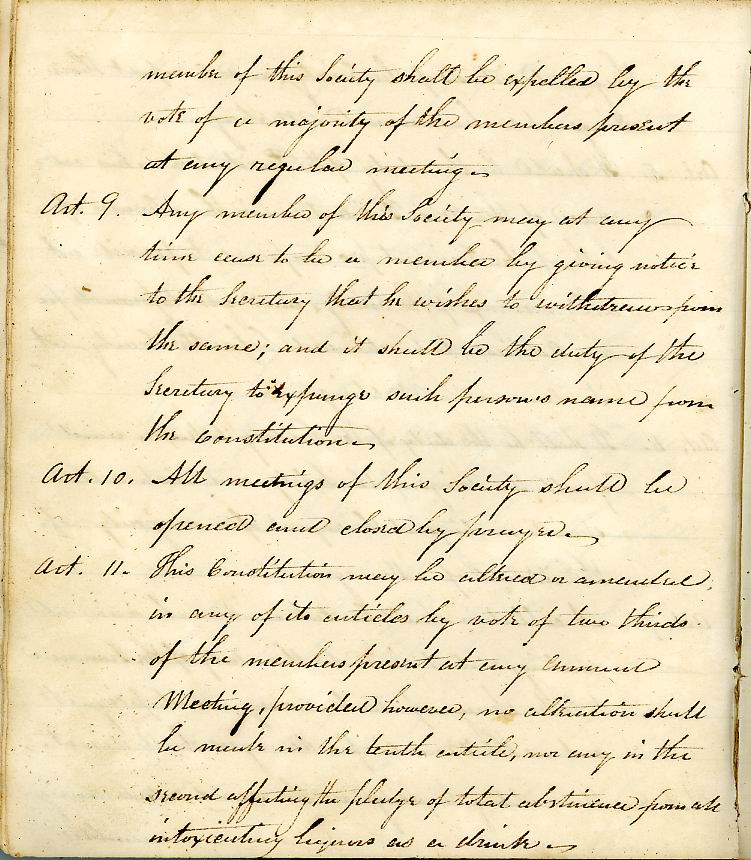 member of this Society shall be expelled by the
vote of a majority of the members present
at any regular meeting.
Art. 9. Any member of this Society may at any
time cease to be a member by giving notice
to the Secretary that he wishes to withdraw from
the same; and it shall be the duty of the
Secretary to expunge such person's name from
the constitution.
Art. 10. All meetings of this Society shall be
opened and closed by prayer.
Art. 11. This Constitution may be altered or amended,
in any of its articles by vote of two thirds
of the members present at any annual
Meeting, provided however, no alteration shall
be made in the tenth article, nor any in the
second affecting the pledge of total abstinence from all
intoxicating liquors as a drink.